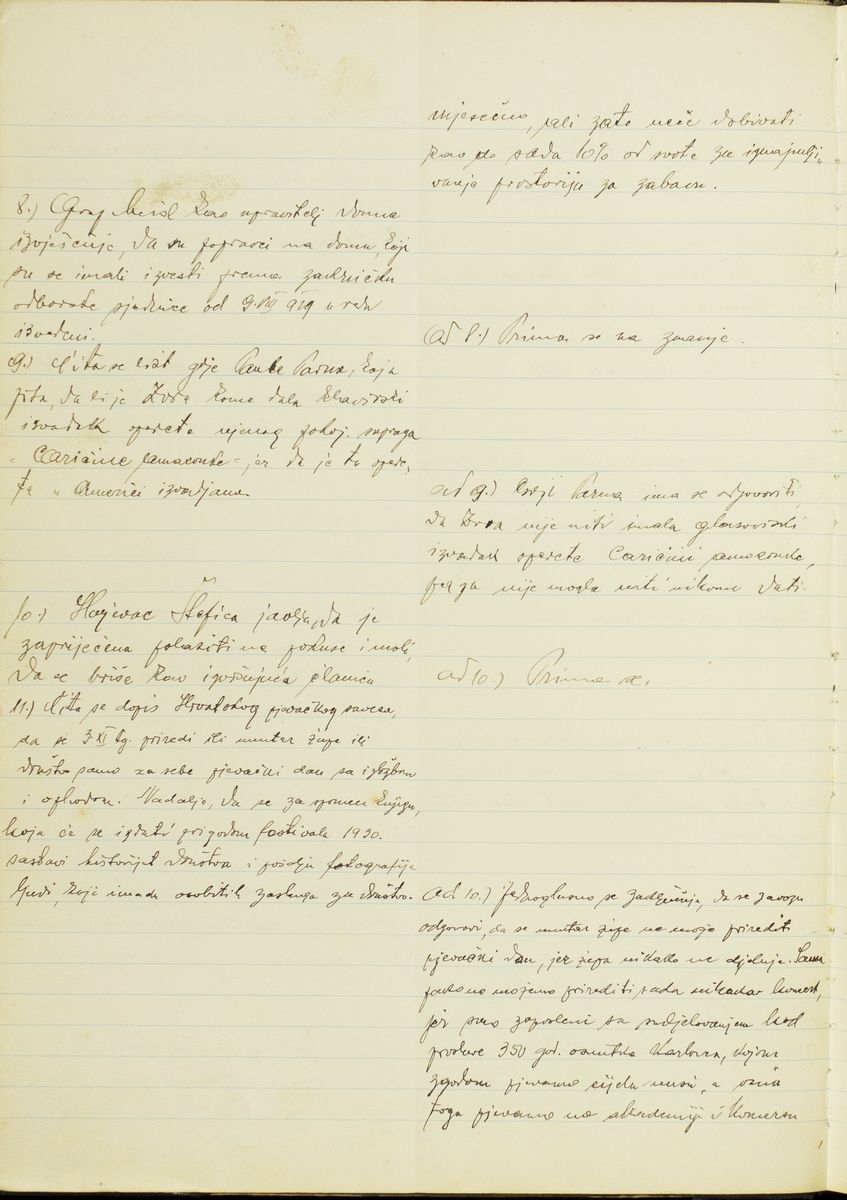 8.) Graj Meisl kao upravitelj doma
izvješćuje, da su popravci na domu, koji
su se imali izvesti prema zaključku
odborske sjednice od 9.VIII 929 u redu
izvedeni.
9.) Čita se list gdje Paule Parma, koja
pita, da li je Zora kome dala klavirski
izvadak operete njenog pokoj. supruga
"Caričine amazonke" jer da je ta opere„
ta u Americi izvadjana
10.) Hojevac Štefica javlja, da je
zapriječena polaziti na pokuse i moli,
da se briše kao izvršujuća članica
11.) Čita se dopis Hrvatskog pjevačkog saveza,
da se 3.XI tg. priredi ili unutar župe ili
društvo samo za sebe pjevački dan sa izložbom
i ophodom. Nadalje, da se za spomen knjigu,
koja će se izdati prigodom festivala 1930.
sastavi historijat društva i pošalju fotografije
ljudi, koji imadu osobitih zasluga za društvo.
mjesečno, ali zato neće dobivati
kao do sada 10% od svote za iznajmlji„
vanje prostorija za zabavu.
ad 8.) Prima se na znanje.
ad 9.) Gdji Parma ima se odgovoriti,
da Zora nije niti imala glasovirski
izvadak operete Caričini amazonke,
pa ga nije mogla niti nikomu dati.
ad 10.) Prima se.
ad 10.) Jednoglasno se zaključuje, da se savezu
odgovori, da se unutar župe ne može prirediti
pjevački dan, jer župa nikako ne djeluje. Sami
pako ne možemo prirediti sada nikakav koncert,
jer smo zaposleni sa sudjelovanjem kod
proslave 350 god. osnutka Karlovca, kojom
zgodom pjevamo cijelu misu, a osim
toga pjevamo na akademiji i komersu